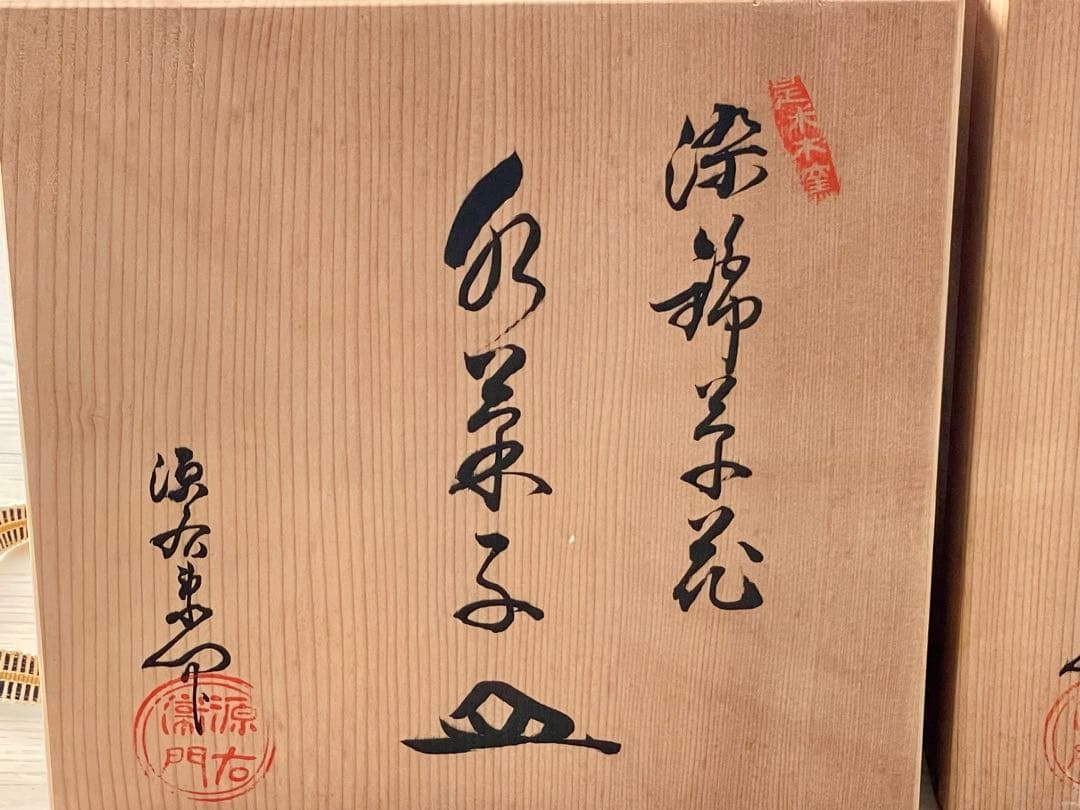 是米木窯
染錦草花
水菓子皿
源右衛門
源右
衛門